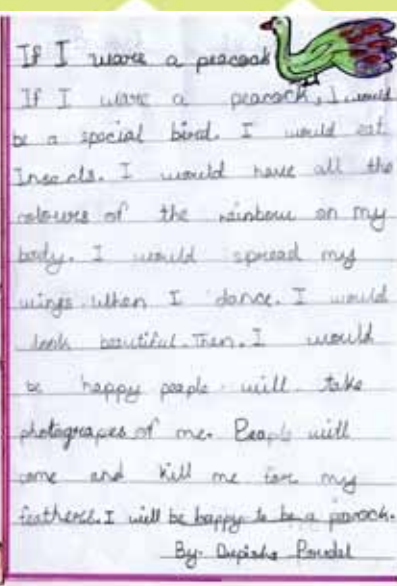 If I ware a peacock
If I ware a peacock, I would
be a special bird. I would eat
Insects. I would have all the
colours of the rainbow on my
body. I would spread my
wings when I dance. I would
look beautiful. Then. I would
be happy people will take
photograpes of me. People will
come and kill me for my
feathers. I will be happy to be a pacock.
By- Poudel